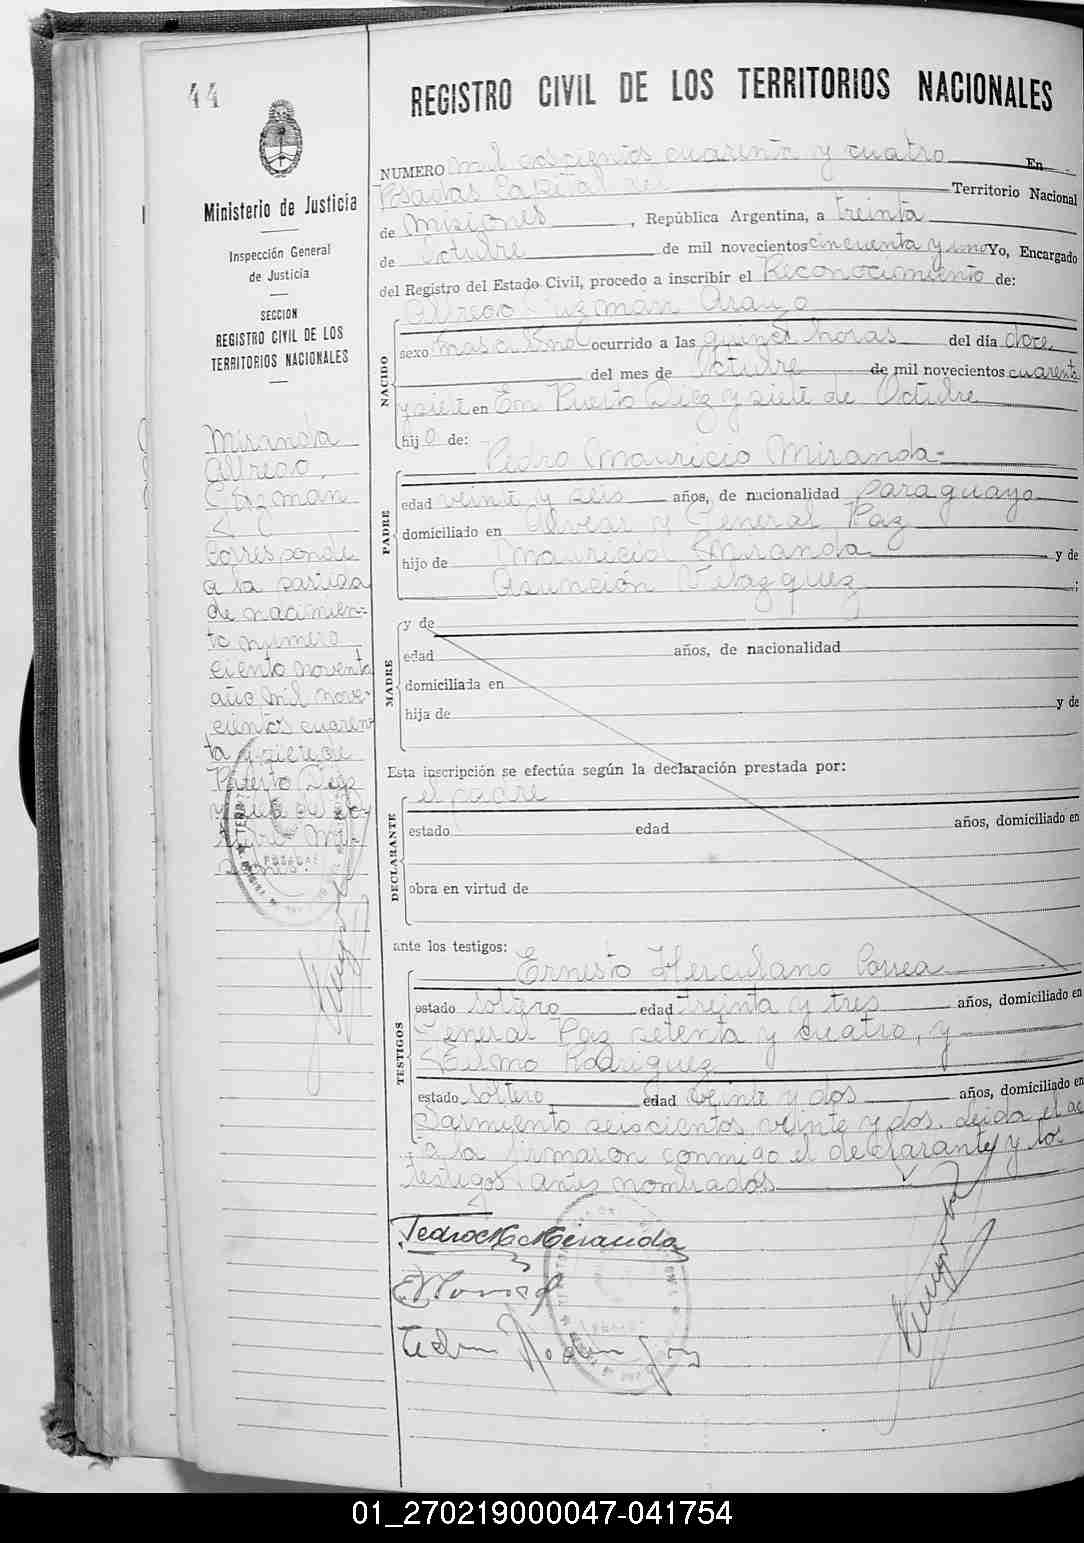 44
Ministerio de Justicia
Inspección General
de Justicia
SECCION
REGISTRO CIVIL DE LOS
TERRITORIOS NACIONALES
Miranda
Alfredo
Guzman
Corresponde
a la partida
de nacimien-
to número
ciento noventa
año mil nove-
cientos cuaren
ta y siete de
Puerto Diez
y siete de Oc
tubre
POSADAS
REGISTRO CIVIL DE LOS TERRITORIOS NACIONALES
NUMERO mil doscientos cuarenta y cuatro En
Posadas Capital del Territorio Nacional
de Misiones, República Argentina, a treinta
de Octubre de mil novecientos cincuenta y uno Yo, Encargado
del Registro del Estado Civil, procedo a inscribir el Reconocimiento de:
Alfredo Guzmán Araujo
NACIDO
sexo masculino ocurrido a las quince horas del día doce
del mes de Octubre de mil novecientos cuarenta
y siete en En Puerto Diez y siete de Octubre
hijo de:
PADRE
Pedro Mauricio Miranda-
edad veinte y seis años, de nacionalidad paraguayo
domiciliado en Alvear y General Paz
hijo de Mauricio Miranda y de
Asunción Velazquez;
MADRE
y de
edad años, de nacionalidad
domiciliada en
hija de y de
Esta inscripción se efectúa según la declaración prestada por:
DECLARANTE
el padre
estado edad años, domiciliado en
obra en virtud de
ante los testigos:
TESTIGOS
Ernesto Herculano Correa
estado soltero edad treinta y tres años, domiciliado en
General Paz setenta y cuatro, y
Telmo Rodriguez
estado soltero edad veinte y dos años, domiciliado en
Sarmiento seiscientos veinte y dos. Leida el ac
ta la firmaron conmigo el declarante y los
testigos antes nombrados
Pedro M. Miranda
01_270219000047-041754